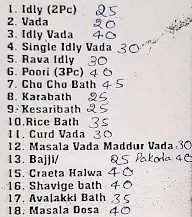 1. Idly (2Pc) 25
2. Vada 20
3. Idly Vada 40
4. Single Idly Vada 30
5. Rava Idly 30
6. Poori (3Pc) 40
7. Cho Cho Bath 45
8. Karabath 25
9. Kesaribath 25
10.Rice Bath 35
11. Curd Vada 30
12. Masala Vada Maddur Vada 30
13. Bajji/ 25 Pakoda 40
15. Craeta Halwa 40
16. Shavige bath 40
17. Avalakki Bath 35
18. Masala Dosa 40